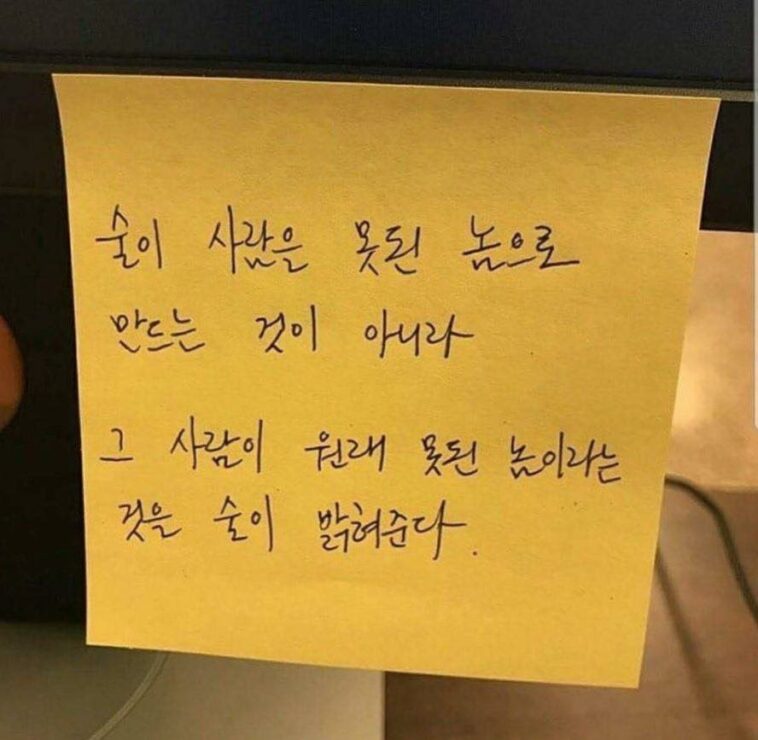 술이 사람을 못된 놈으로
만드는 것이 아니라
그 사람이 원래 못된 놈이라는
것을 술이 밝혀준다.